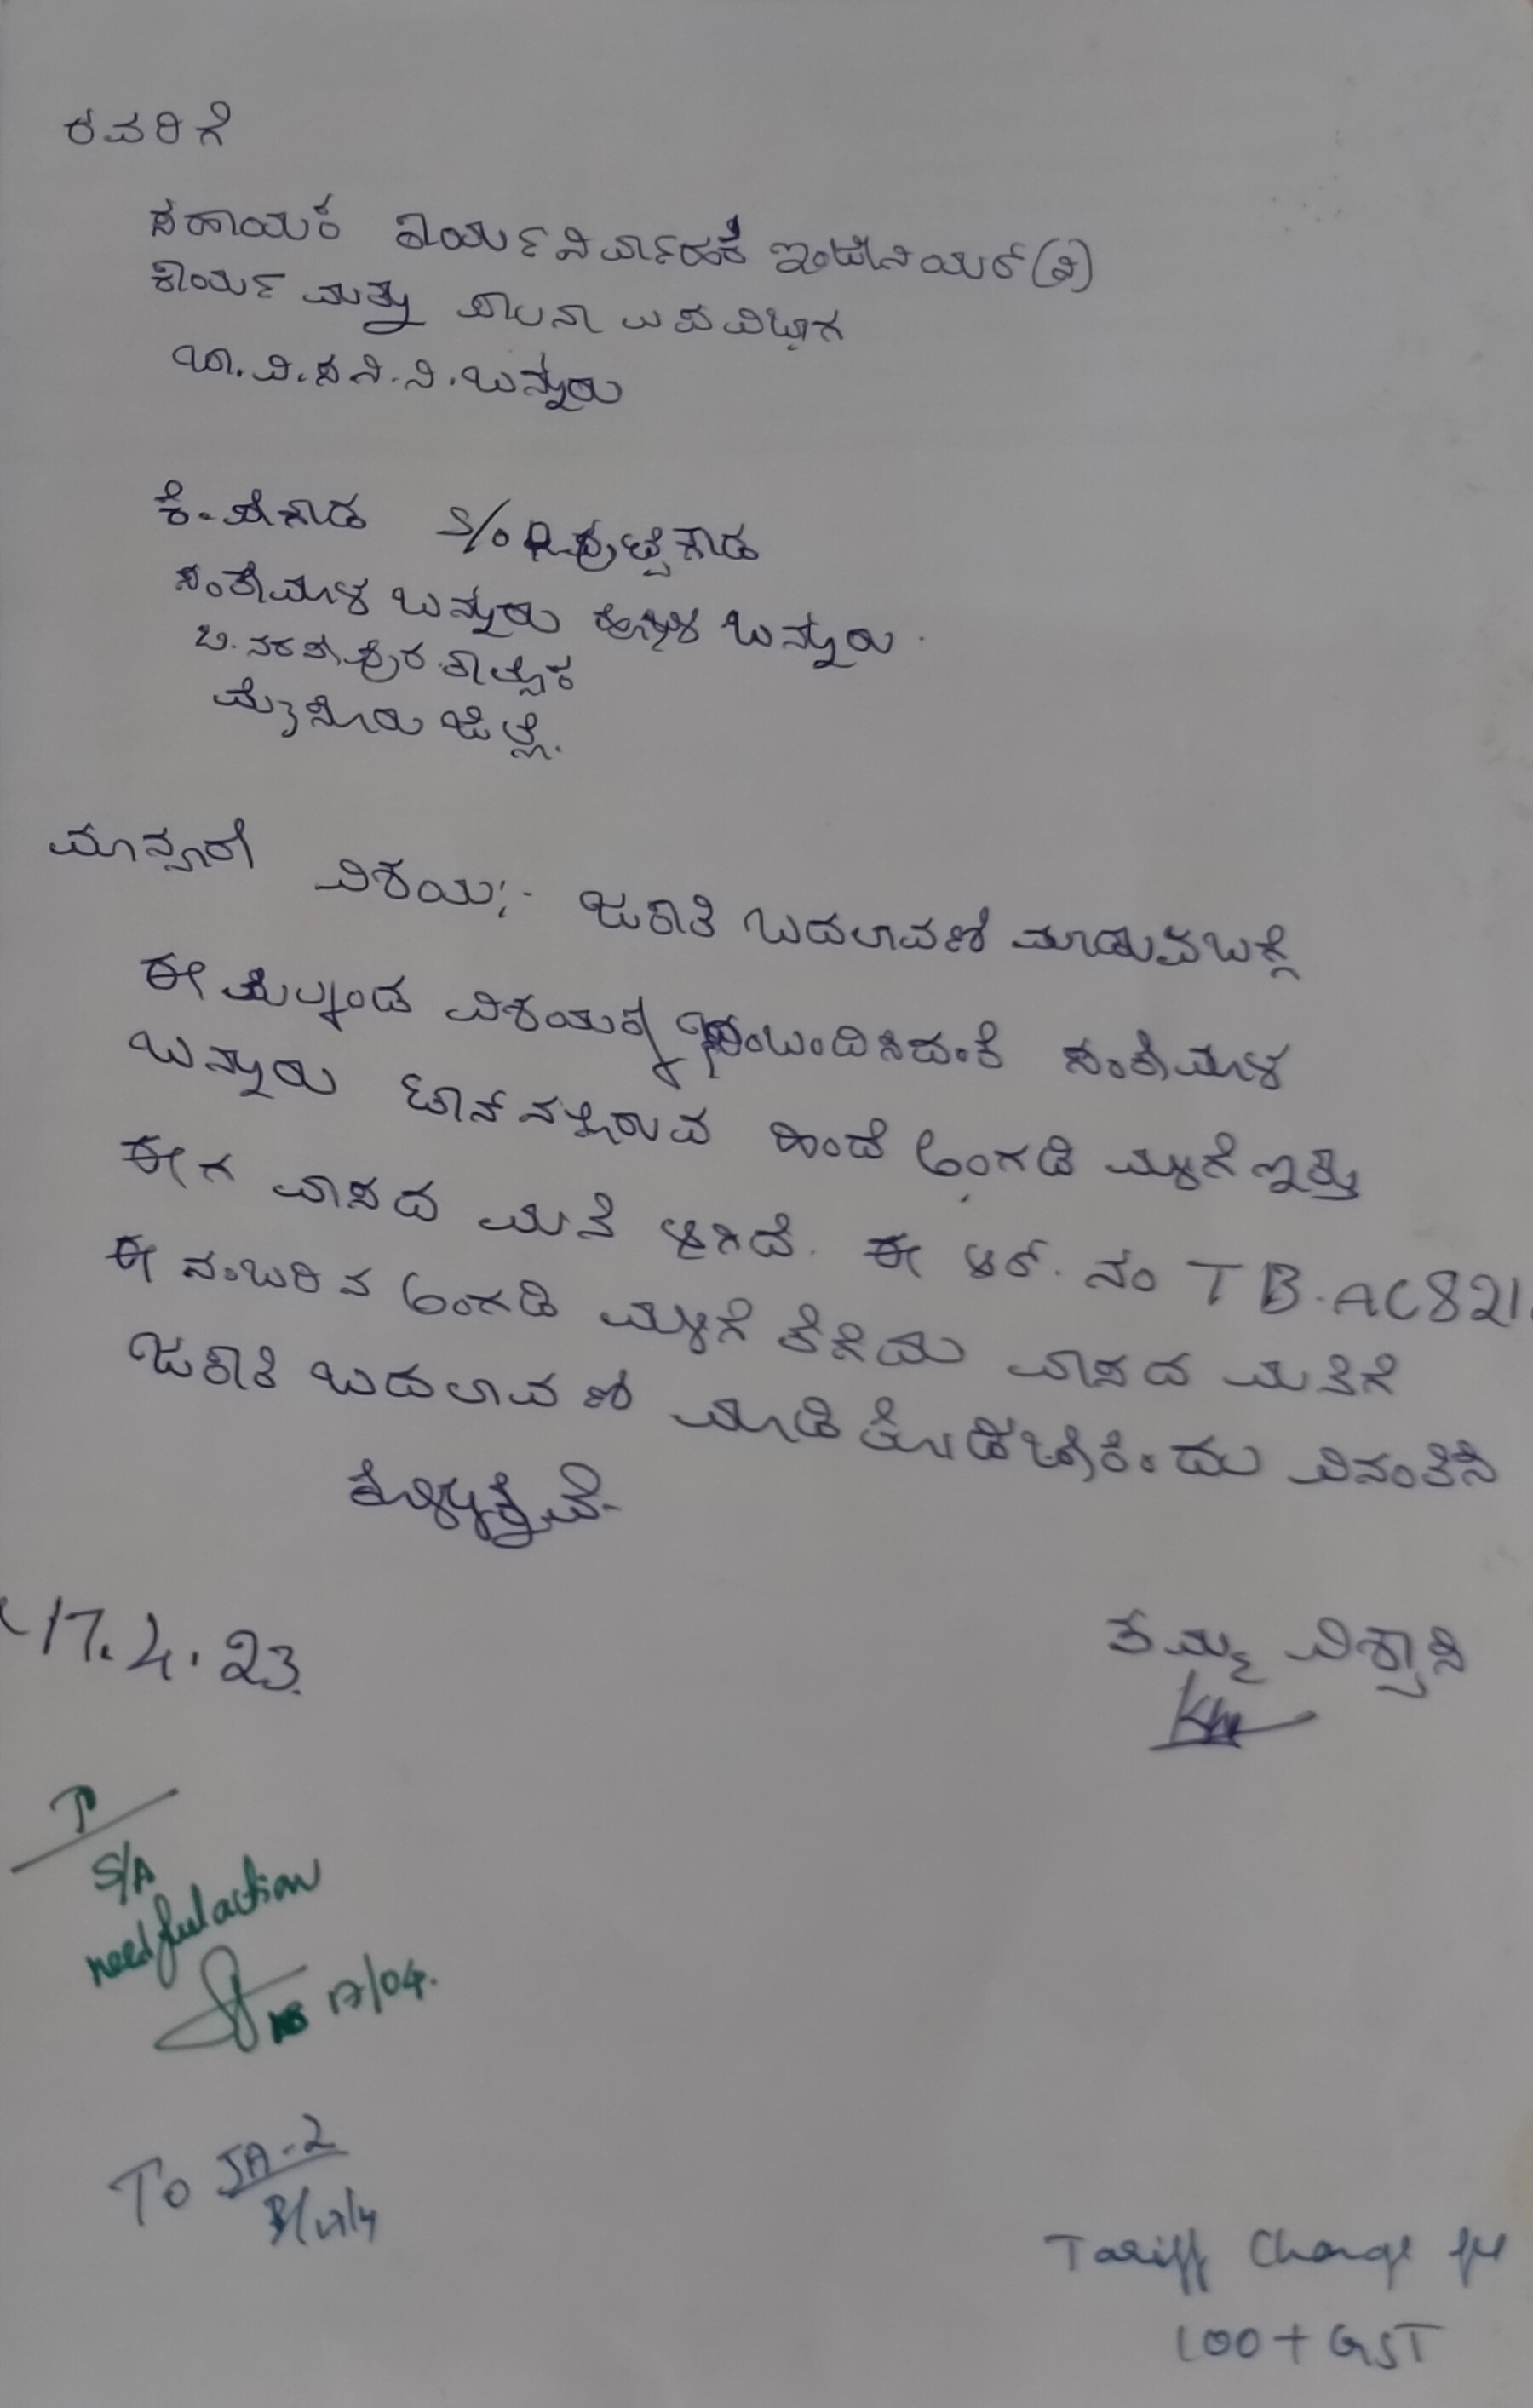 ರವರಿಗೆ
ಸಹಾಯಕ ಕಾರ್ಯನಿರ್ವಾಹಕ ಇಂಜಿನಿಯರ್(ವಿ)
ಕಾರ್ಯ ಮತ್ತು ಪಾಲನಾ ಉಪವಿಭಾಗ
ಚಾ.ವಿ.ಸ.ನಿ.ನಿ.ಬನ್ನೂರು
ಕೆ. S/o ಪುಟ್ಟೇಗೌಡ
ಸಂತೇಮಾಳ ಬನ್ನೂರು ಹೋಬಳಿ ಬನ್ನೂರು
ಟಿ.ನರಸೀಪುರ ತಾಲ್ಲೂಕ
ಮೈಸೂರು ಜಿಲ್ಲೆ.
ಮಾನ್ಯರೇ
ವಿಶಯ:- ಜಕಾತಿ ಬದಲಾವಣೆ ಮಾಡುವಬಗ್ಗೆ
ಈ ಮೇಲ್ಕಂಡ ವಿಶಯಕ್ಕೆ ಸಂಬಂದಿಸಿದಂತೆ ಸಂತೇಮಾಳ
ಬನ್ನೂರು ಟೌನ್‌ನಲ್ಲಿರುವ ಹಿಂದೆ ಅಂಗಡಿ ಮಳಿಗೆ ಇತ್ತು
ಈಗ ವಾಸದ ಮನೆ ಆಗಿದೆ. ಈ ಆರ್. ನಂ TB.AC821
ಈ ನಂಬರಿನ ಅಂಗಡಿ ಮಳಿಗೆ ತೆಗೆದು ವಾಸದ ಮನೆಗೆ
ಜಕಾತಿ ಬದಲಾವಣೆ ಮಾಡಿ ಕೊಡಬೇಕೆಂದು ವಿನಂತಿಸಿ
ಕೊಳ್ಳುತ್ತೇವೆ.
17.4.23.
ತಮ್ಮ ವಿಶ್ವಾಸಿ
S/A
needful action
17/04.
To JA-2
Tariff Change
100 + GST